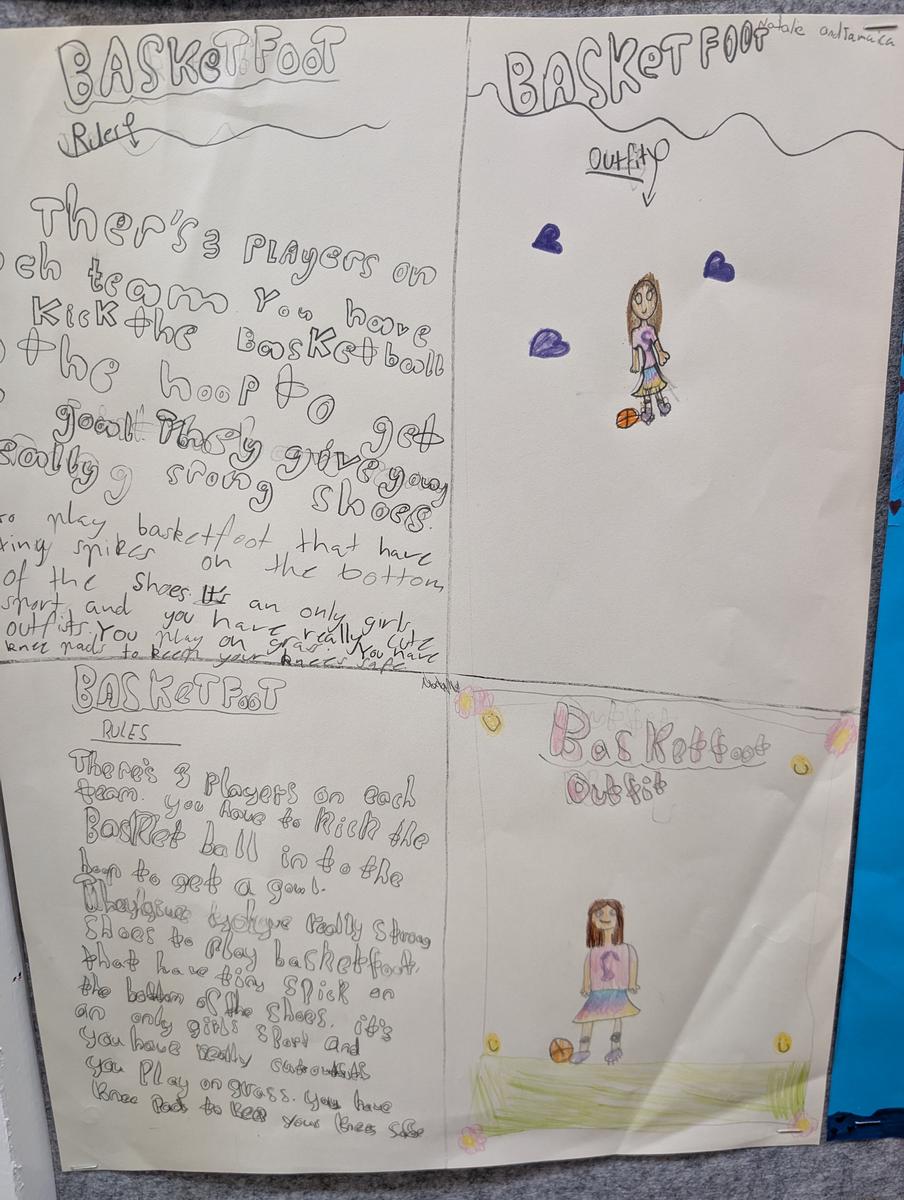 BASKETFOOT
Rules
Ther's 3 PLAyers on
ch team You have
Kick the BasKetball
the hoop to
get
goal They give you
eally strong shoes.
to play basketfoot that have
ing spikes on the bottom
of the shoes. It's an only girls
sport and you have really cute
outfits. You play on grass. You have
knee pads to keep your knees safe.
BASKETFOOT
Natalie and Tamaica
Outfit
BASKETFOOT
RULES
There's 3 players on each
team. you have to kick the
BasKet ball in to the
hoop to get a goal.
They give you really strong
shoes to Play basketfoot.
that have tiny spick on
the bottom of the shoes. it's
an only girls sport and
you have really cute outfits
you Play on grass. you have
knee Pads to keep your knees safe
Natalie
Basketfoot
Outfit